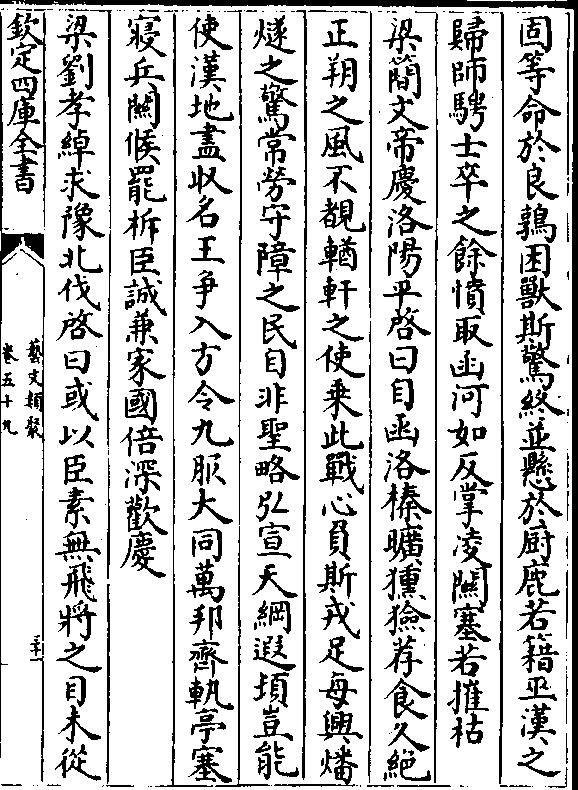 固等命於良鶉困獸斯驚終並懸於厨鹿若籍巫漢之
歸師騁士卒之餘憤取函河如反掌凌闗塞若摧枯
梁簡文帝慶洛陽平啓曰自函洛榛曠獯獫荐食久絶
正朔之風不覩輶軒之使乗此戰心負斯戎足每興燔
燧之驚常勞守障之民自非聖略弘宣天綱遐頓豈能
使漢地盡收名王争入方令九服大同萬邦齊軌亭塞
寢兵闗候罷柝臣誠兼家國倍深歡慶
梁劉孝綽求豫北伐啓曰或以臣素無飛將之目未從
欽定四庫全書
藝文類聚
卷五十九